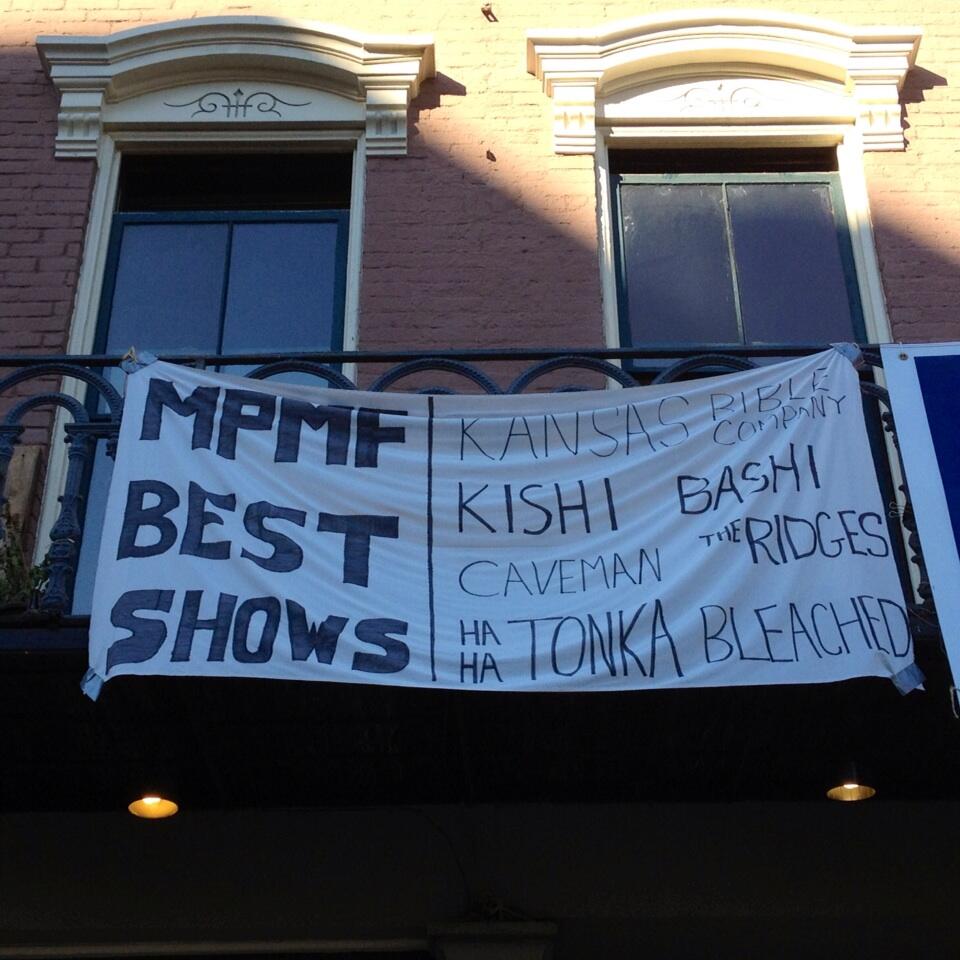 MPMF
BEST
SHOWS
KANSAS BIBLE COMPANY
KISHI BASHI
CAVEMAN THE RIDGES
HA HA TONKA BLEACHED